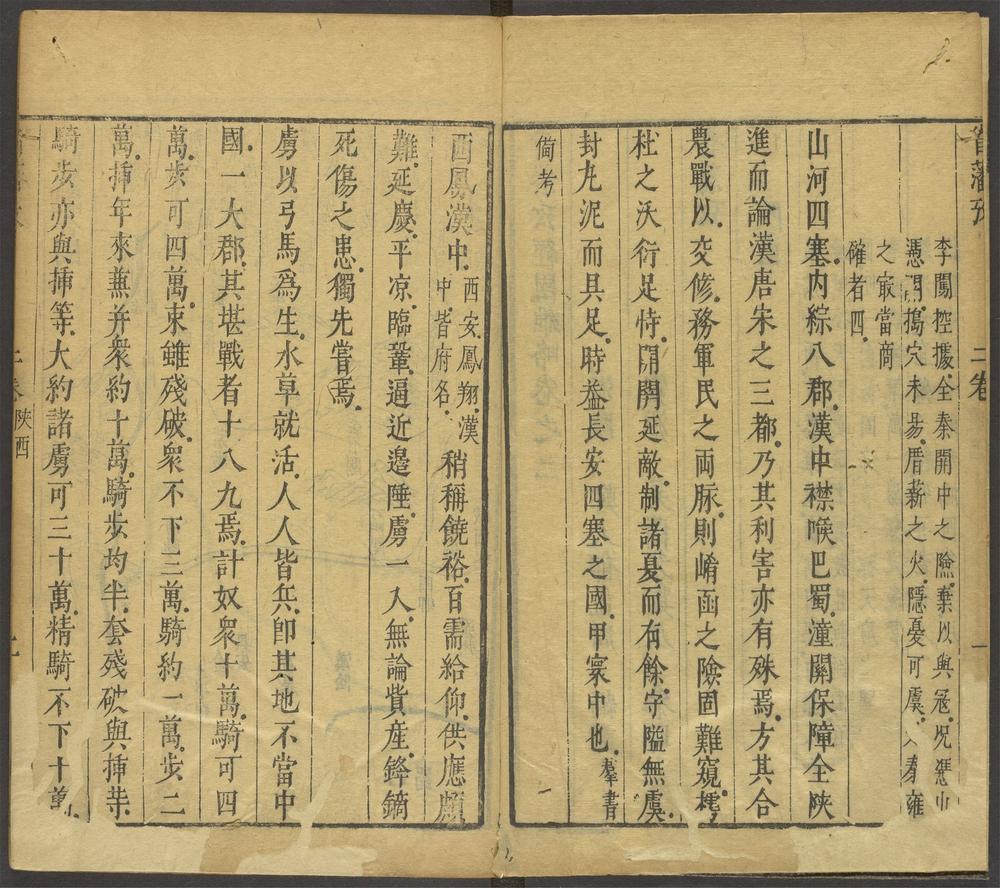 二卷
一
李闖控據全秦開中之險棄以與冦況憑山
憑閗搗穴未易厝薪之火隱憂可虞入春雍
之㝡當商
確者四
山河四塞內綜八郡漢中襟喉巴蜀潼關保障全陝
進而論漢唐宋之三都乃其利害亦有殊焉方其合
農戰以交修務軍民之両脉則崤函之險固難窺樗
杜之沃衍足恃開関延敵制諸夏而有餘守隘無虞
封九泥而具足時益長安四塞之國甲寰中也 羣書
備考
西鳳漢中 西安鳳翔漢
中皆府名 稍稱饒裕百需給仰供應頗
難延慶平凉臨鞏逼近邉陲虜一入無論貲産鋒鏑
死傷之患獨先嘗焉
虜以弓馬爲生水草就活人人皆兵卽其地不當中
國一大郡其堪戰者十八九焉計奴衆十萬騎可四
萬步可四萬東雖殘破衆不下三萬騎約一萬步二
萬揷年來兼并衆約十萬騎步均半套殘破與揷等
騎步亦與揷等大約諸虜可三十萬精騎不下十萬
二卷 陝西